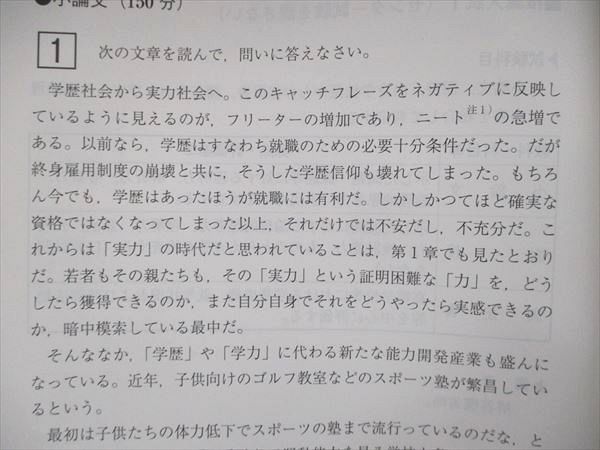 ●小論文（150 分）
1 次の文章を読んで，問いに答えなさい。
学歴社会から実力社会へ。このキャッチフレーズをネガティブに反映し
ているように見えるのが，フリーターの増加であり，ニート注1）の急増で
ある。以前なら，学歴はすなわち就職のための必要十分条件だった。だが
終身雇用制度の崩壊と共に，そうした学歴信仰も壊れてしまった。もちろ
ん今でも，学歴はあったほうが就職には有利だ。しかしかつてほど確実な
資格ではなくなってしまった以上，それだけでは不安だし，不充分だ。こ
れからは「実力」の時代だと思われていることは，第１章でも見たとおり
だ。若者もその親たちも，その「実力」という証明困難な「力」を，どう
したら獲得できるのか，また自分自身でそれをどうやったら実感できるの
か，暗中模索している最中だ。
そんななか，「学歴」や「学力」に代わる新たな能力開発産業も盛んに
なっている。近年，子供向けのゴルフ教室などのスポーツ塾が繁昌してい
るという。
最初は子供たちの体力低下でスポーツの塾まで流行っているのだな，と